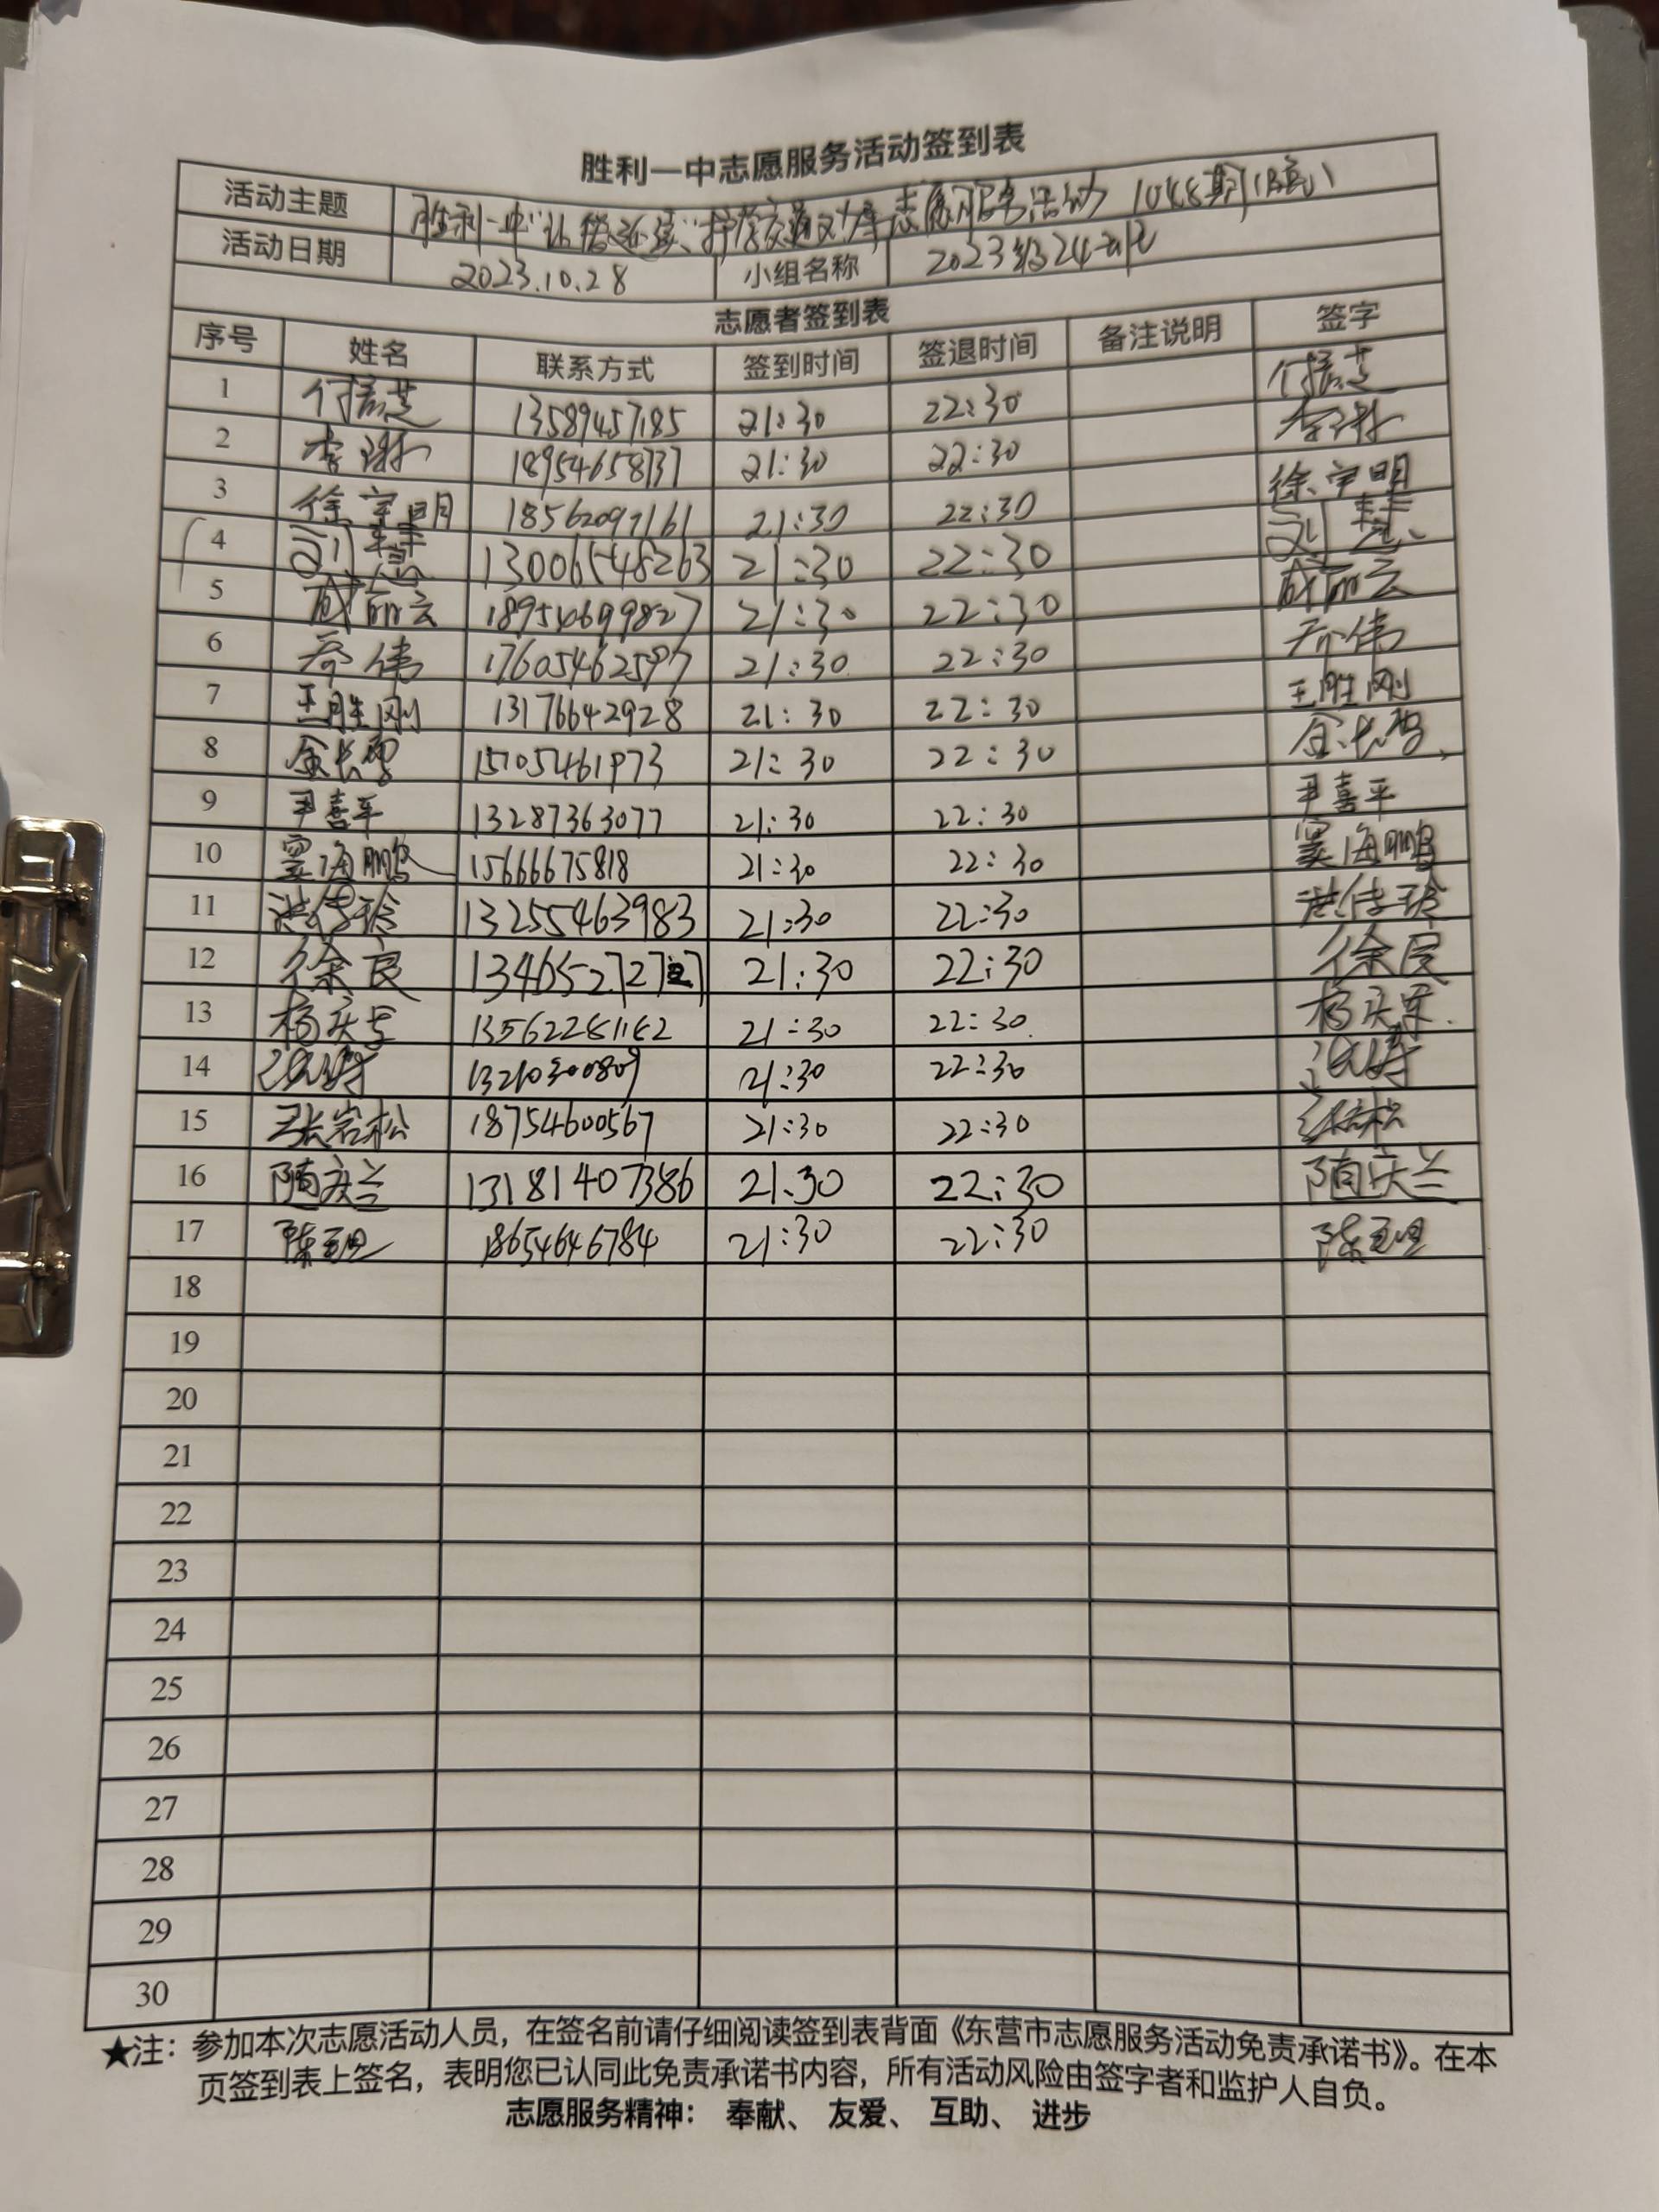 胜利一中志愿服务活动签到表
活动主题 胜利一中"让爱延续"护学交通义务岗志愿服务活动 1048期
活动日期 2023.10.28 小组名称 2023级24班
志愿者签到表
序号 姓名 联系方式 签到时间 签退时间 备注说明 签字
1 13589457185 21:30 22:30
2 李 18954658737 21:30 22:30 李
3 徐宝明 18562097161 21:30 22:30 徐宝明
4 刘 13006548263 21:30 22:30 刘
5 成丽云 18954699827 21:30 22:30 成丽云
6 乔伟 17605462597 21:30 22:30 乔伟
7 王胜刚 13176642928 21:30 22:30 王胜刚
8 金长雪 15705461973 21:30 22:30 金长雪
9 尹喜平 13287363077 21:30 22:30 尹喜平
10 窦海鹏 15666675818 21:30 22:30 窦海鹏
11 洪传玲 13255463983 21:30 22:30 洪传玲
12 徐良 13465272727 21:30 22:30 徐良
13 杨庆军 13562281162 21:30 22:30 杨庆军
14 13210300809 21:30 22:30
15 张岩松 18754600567 21:30 22:30 张岩松
16 隋庆兰 13181407386 21:30 22:30 隋庆兰
17 陈 18654646784 21:30 22:30 陈
18
19
20
21
22
23
24
25
26
27
28
29
30
★注：参加本次志愿活动人员，在签名前请仔细阅读签到表背面《东营市志愿服务活动免责承诺书》。在本
页签到表上签名，表明您已认同此免责承诺书内容，所有活动风险由签字者和监护人自负。
志愿服务精神： 奉献、 友爱、 互助、 进步